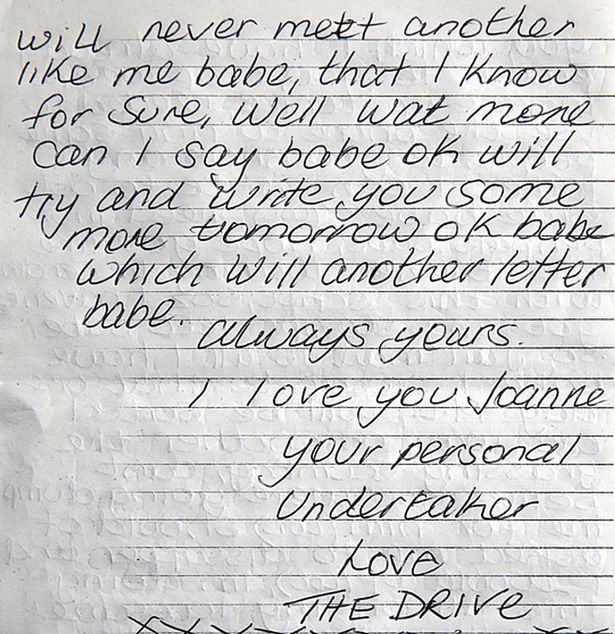 will never meet another
like me babe, that I know
for sure, well wat more
can I say babe ok will
try and write you some
more tomorrow ok babe
which will another letter
babe.
always yours.
I love you Joanne
your personal
Undertaker
Love
THE DRIVE
XXXXXX